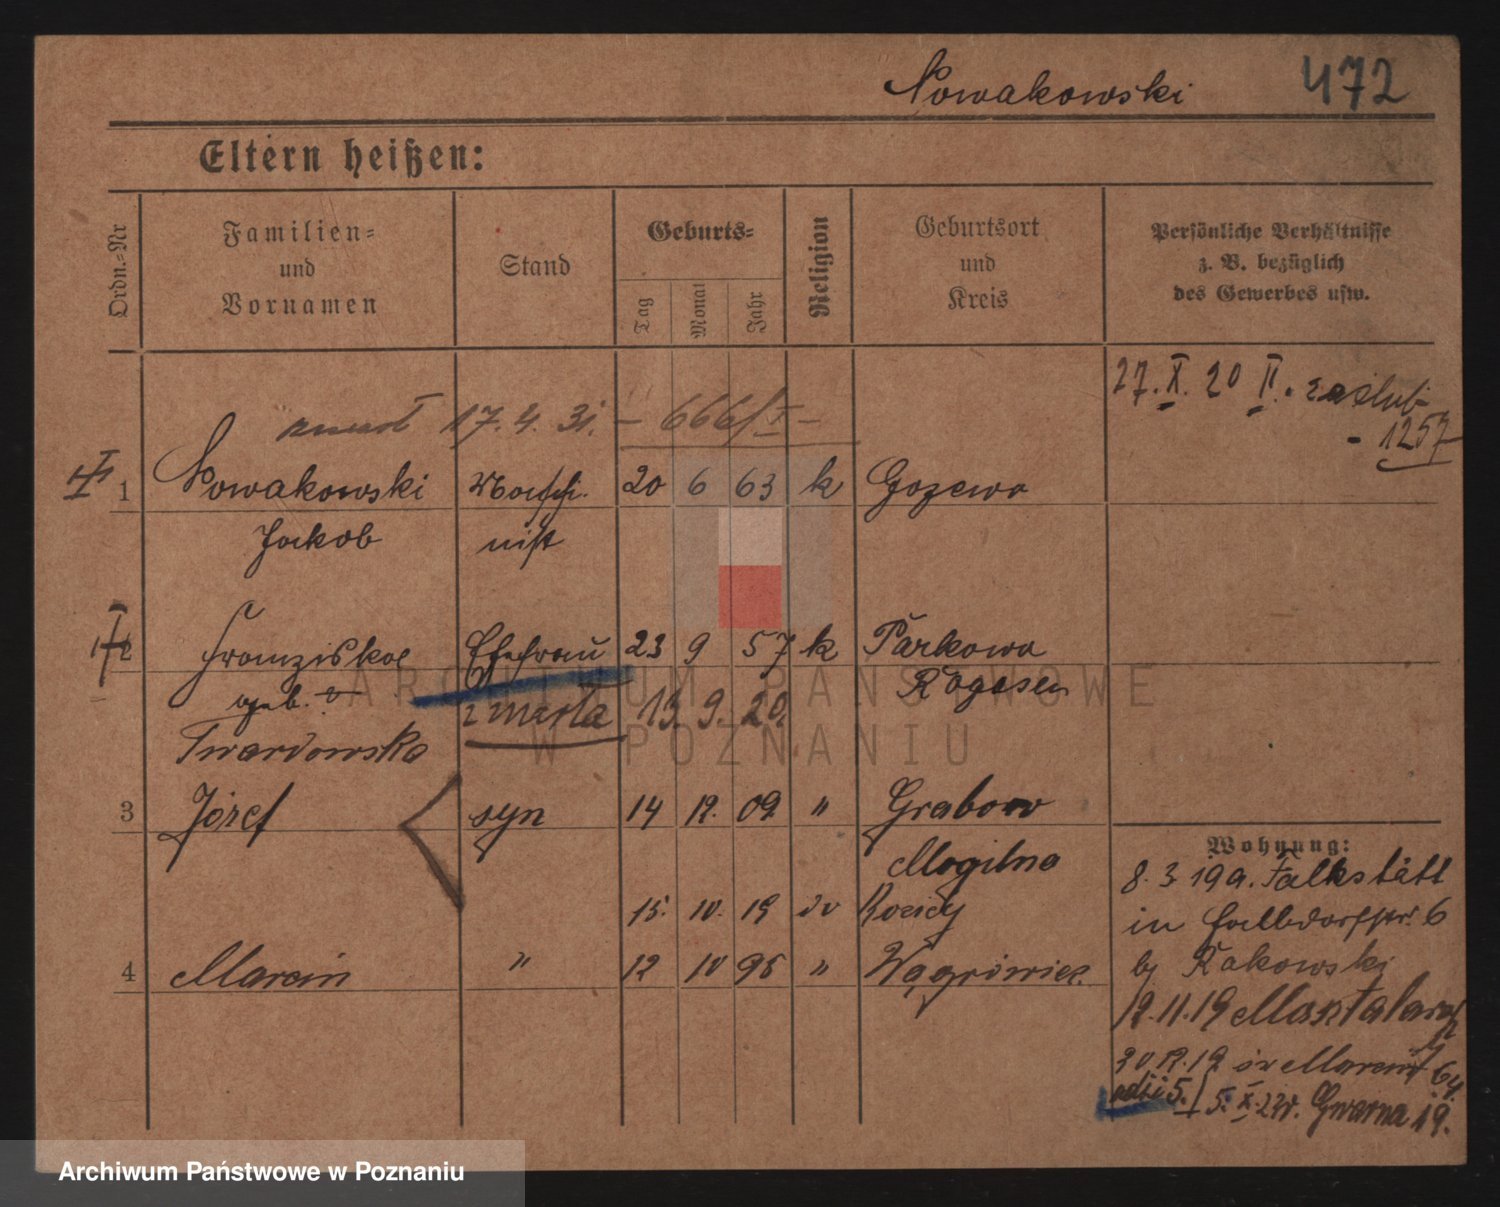 Nowakowski 472
Eltern heißen:
Ordn.=Nr
Familien=
und
Vornamen
Stand
Geburts=
Tag
Monat
Jahr
Religion
Geburtsort
und
Kreis
Persönliche Verhältnisse
z. B. bezüglich
des Gewerbes usw.
27. X. 20 II. zaślub
- 1257
zmarł 17.4.31. - 666/I -
1 Nowakowski 20 6 63 k Gozewo
Jakob nist
2 Franziska Ehefrau 23 9 57 k Parkowo
geb. Rogasen
zmarła 19. 9. 20.
Twardowska
3 Józef syn 14 12. 09 " Grabowo
Mogilno
15. 10. 19
4 Marcin " 12 10 95 " Wągrówiec
Wohnung:
8. 3 19 a. Falkstätt
in 6
by Rakowski
12.11.19
20.12.19 Marcin 64
5. X. 22 Gwarna 19.
ARCHIWUM PAŃSTWOWE
W POZNANIU
Archiwum Państwowe w Poznaniu